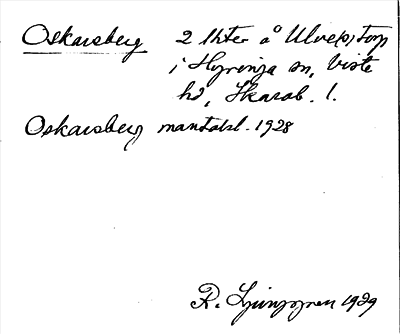 Oskarsberg 2 lhter å Ulve(s)torp
i Hyringa sn, Viste
hd, Skarab. l.
Oskarsberg mantalsl. 1928
R. Ljunggren 1929